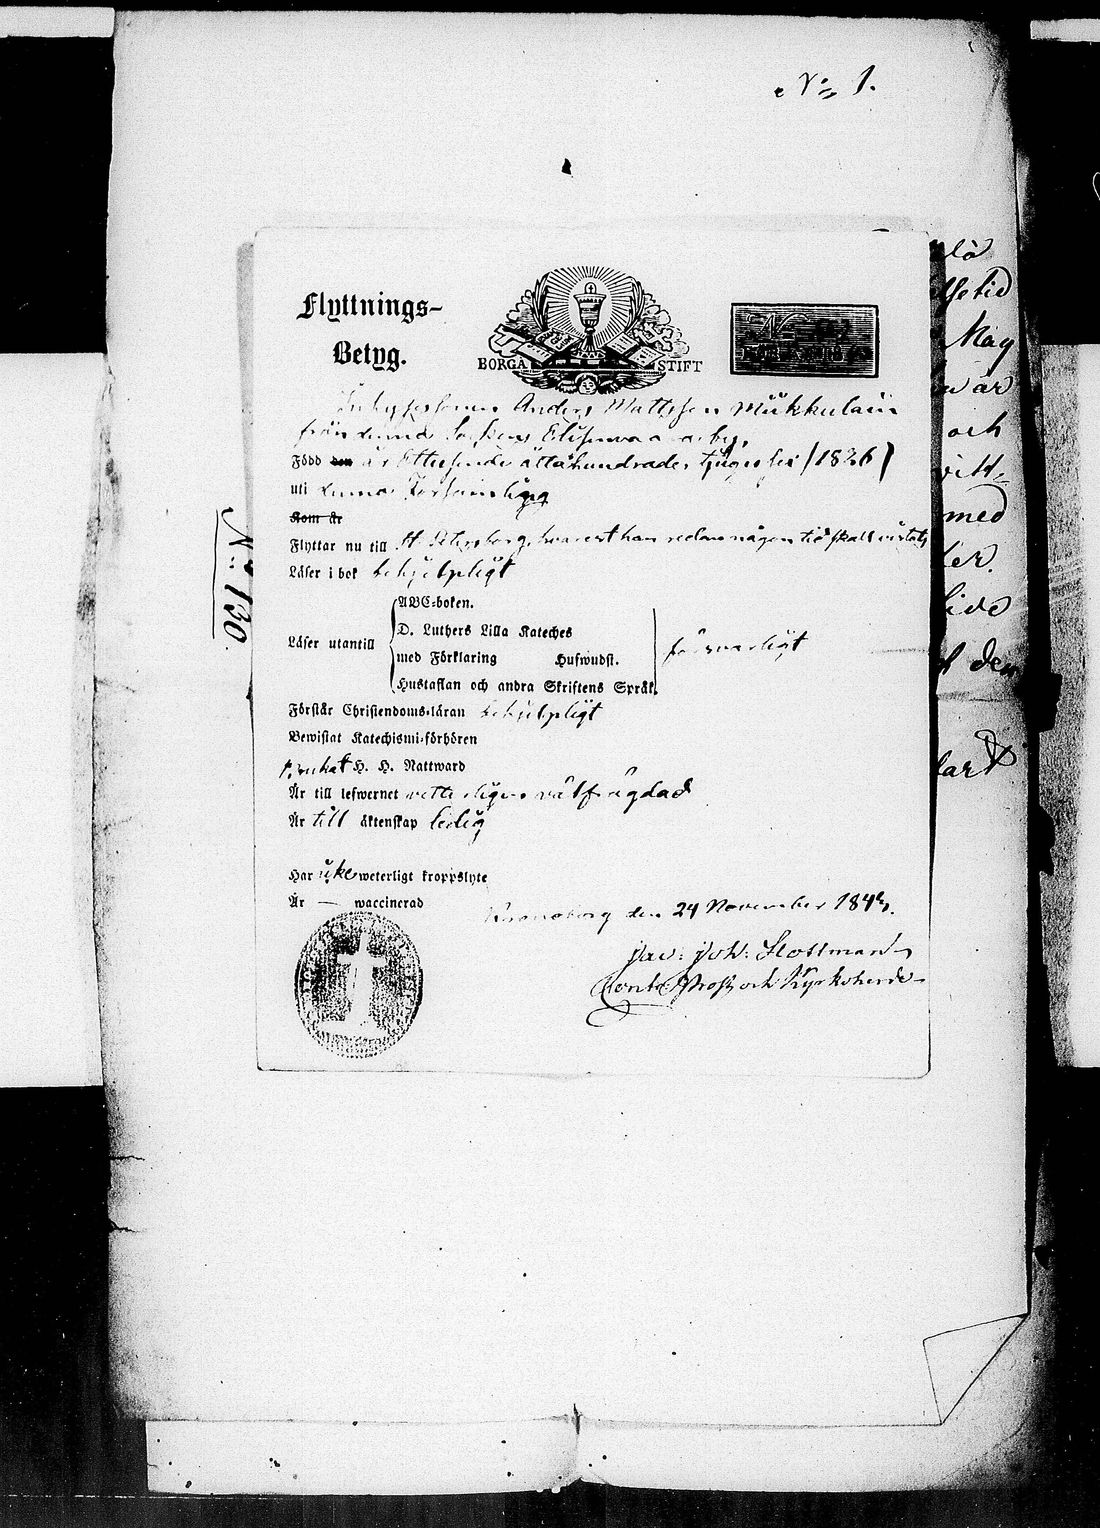 No 1.
Flyttnings-
Betyg.
BORGÅ STIFT
Anders Mattsson Mükkulain
från denna Sockens Elisenvaara by,
Född den år Ettusende åttahundrade tjugosex (1826)
uti denna Församling
Kom år
Flyttar nu till St Petersborg, hvarest han redan någon tid skall vistats
Läser i bok behjelpligt
Läser utantill
ABC-boken.
D. Luthers Lilla Kateches
med Förklaring Hufwudst.
Hustaflan och andra Skriftens Språk.
försvarligt
Förstår Christendoms-läran behjelpligt
Bewistat Katechismi-förhören
brukat H. H. Nattward
Är till lefwernet vetterligen välfrägdad
Är till äktenskap ledig
Har icke weterligt kroppslyte
Är — waccinerad
Kronoborg den 24 November 184
Jac: Joh:
Contr. Prost och Kyrkoherde
No 130
Maj
är
och
vitt-
med
den